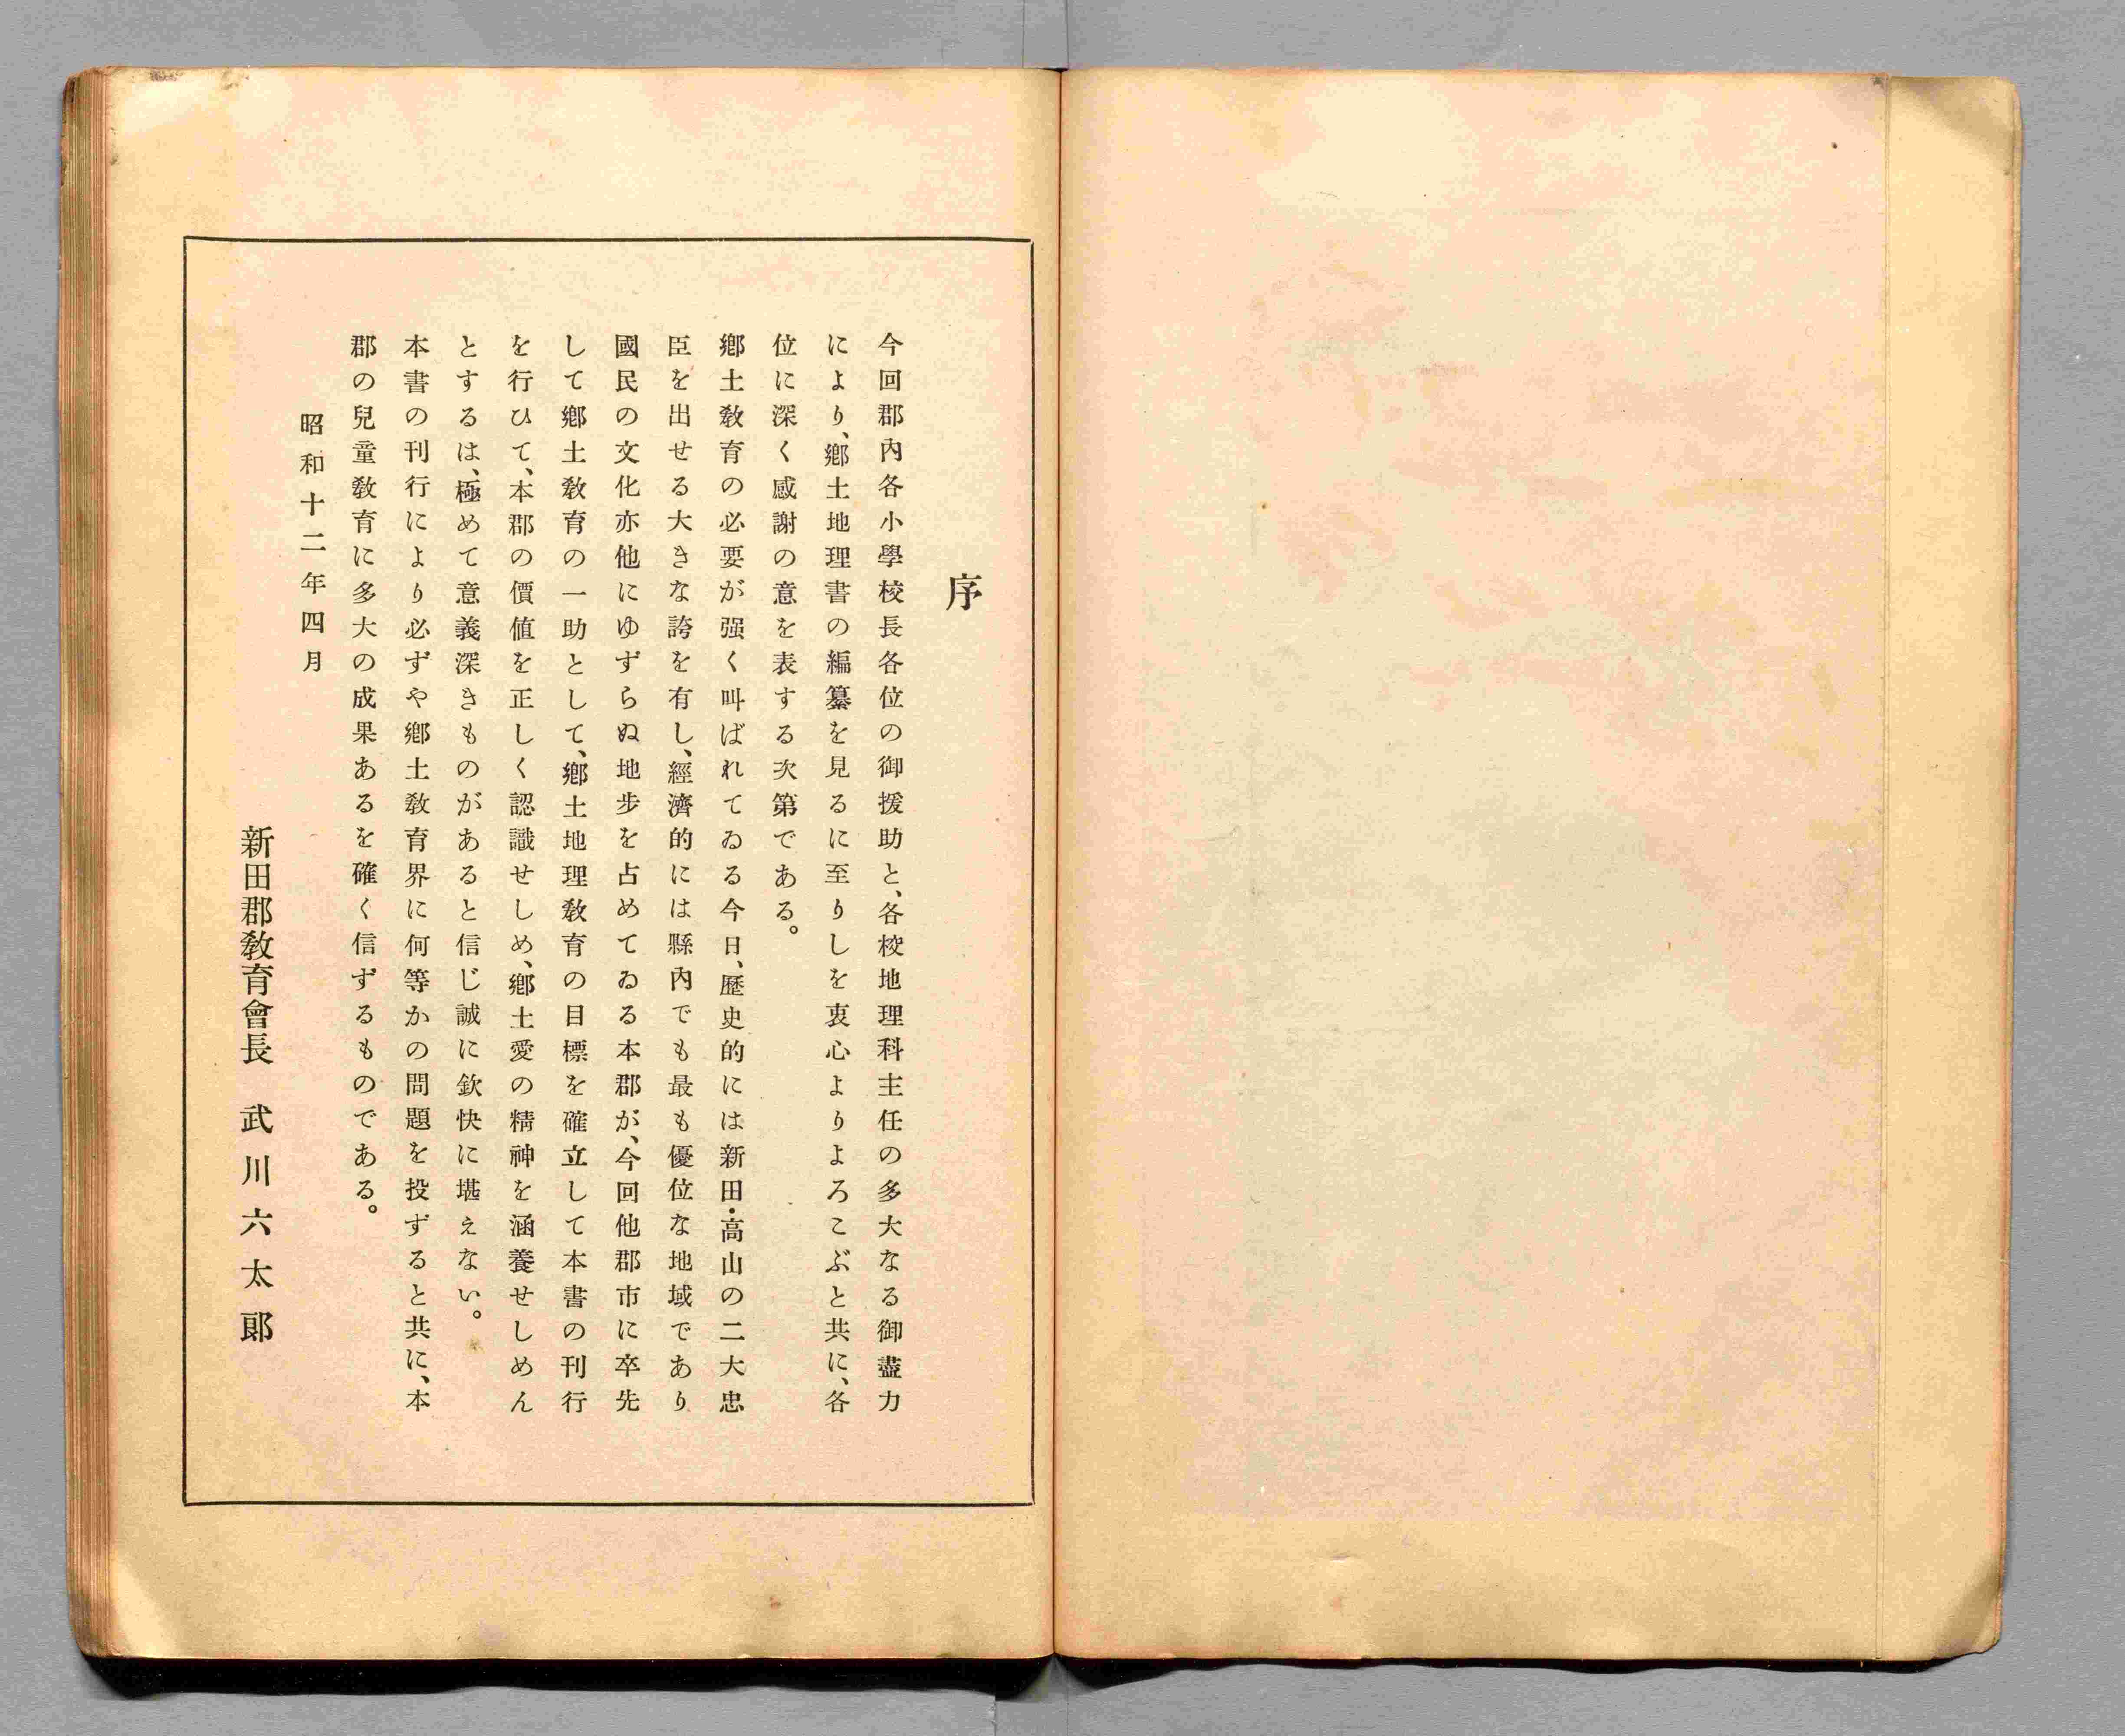 序
今回郡內各小學校長各位の御援助と、各校地理科主任の多大なる御盡力
により、鄕土地理書の編纂を見るに至りしを衷心よりよろこぶと共に、各
位に深く感謝の意を表する次第である。
鄕土敎育の必要が强く叫ばれてゐる今日、歷史的には新田・高山の二大忠
臣を出せる大きな誇を有し、經濟的には縣內でも最も優位な地域であり
國民の文化亦他にゆずらぬ地步を占めてゐる本郡が、今回他郡市に卒先
して鄕土敎育の一助として、鄕土地理敎育の目標を確立して本書の刊行
を行ひて、本郡の價値を正しく認識せしめ、鄕土愛の精神を涵養せしめん
とするは、極めて意義深きものがあると信じ誠に欽快に堪えない。
本書の刊行により必ずや鄕土敎育界に何等かの問題を投ずると共に、本
郡の兒童敎育に多大の成果あるを確く信ずるものである。
昭和十二年四月
新田郡敎育會長 武川六太郞